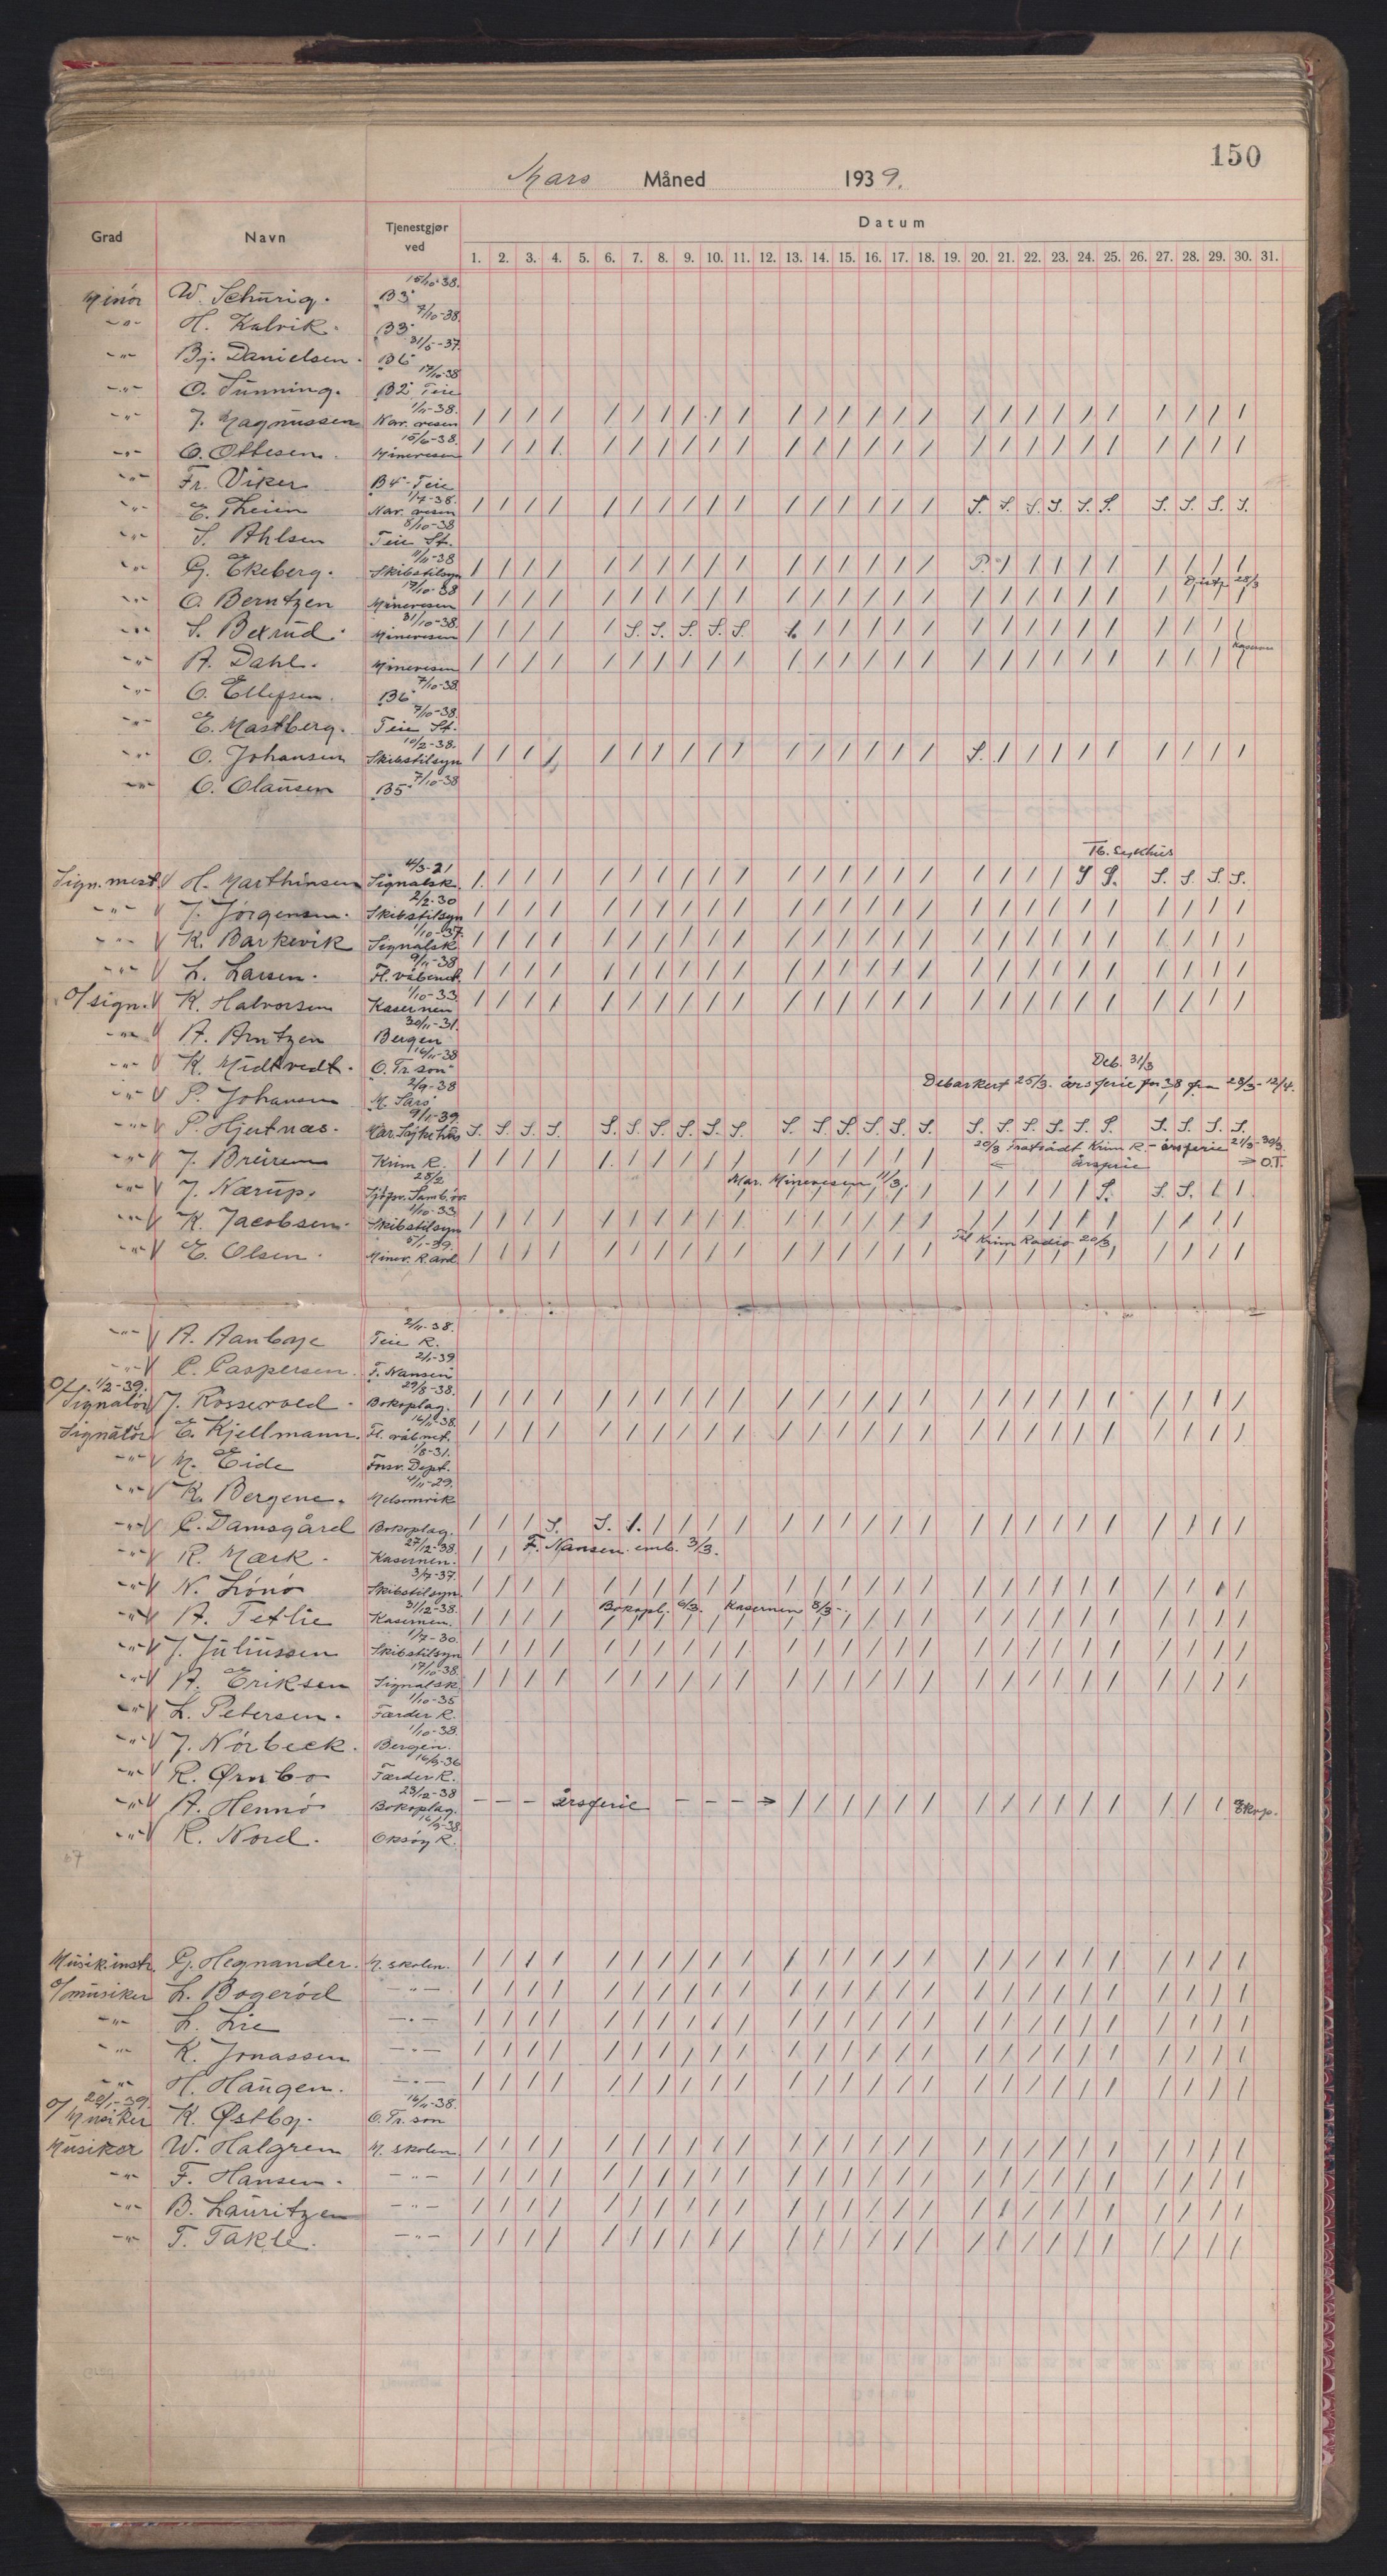 150
Mars Måned 1939.
Grad Navn Tjenestgjør ved Datum
1. 2. 3. 4. 5. 6. 7. 8. 9. 10. 11. 12. 13. 14. 15. 16. 17. 18. 19. 20. 21. 22. 23. 24. 25. 26. 27. 28. 29. 30. 31.
Minör W. Schürig. 15/10-38. B3
-"- H. Kalvik. 7/10-38. B3
-"- Bj. Danielsen. 31/5-37. B6
-"- O. Tünning. 17/10-38 B2 Teie
-"- J. Magnüssen 1/11-38. Nav. vesen / / / / / / / / / / / / / / / / / / / / / / / / / /
-"- O. Ottesen. 15/6-38. Minevesen / / / / / / / / / / / / / / / / / / / / / / / / / /
-"- Fr. Viker B4 - Teie
-"- E. Theiin 1/7-38. Nav. vesen / / / / / / / / / / / / / / / / S. S. S. S. S. S. S. S. S. S.
-"- S. Ahlsen 8/10-38 Teie St.
-"- G. Ekeberg. 11/11-38 Skibstilsyn / / / / / / / / / / / / / / / / P. / / / / / / / / /
-"- O. Berntzen 17/10-38 Minevesen / / / / / / / / / / / / / / / / / / / / / / / / / / 28/3
-"- S. Bexrüd. 31/10-38. Minevesen / / / / / S. S. S. S. S. / / / / / / / / / / / / / / / /
-"- A. Dahl. Minevesen / / / / / / / / / / / / / / / / / / / / / / / / / / Kasernen
-"- O. Ellefsen. 7/10-38. B6
-"- E. Mastberg. 7/10-38. Teie St.
-"- O. Johansen 10/2-38. Skibstilsyn / / / / / / / / / / / / / / / / S. / / / / / / / / /
-"- O. Olaüsen 7/10-38 B5
Tb. Sykhüs
Sign. mest. H. Marthinsen 4/3-21 Signalsk. / / / / / / / / / / / / / / / / / / / / S S. S. S. S. S.
-"- J. Jörgensen. 2/2-30 Skibstilsyn / / / / / / / / / / / / / / / / / / / / / / / / / /
-"- K. Barkevik 1/10-37. Signalsk / / / / / / / / / / / / / / / / / / / / / / / / / /
-"- L. Larsen. 9/11-38 Fl. våbnet. / / / / / / / / / / / / / / / / / / / / / / / / / /
O/sign. K. Halvorsen 1/10-33. Kasernen / / / / / / / / / / / / / / / / / / / / / / / / / /
-"- A. Arntzen 30/11-31. Bergen
-"- K. Midtvedt. 16/11-38 O. Tr.son Deb. 31/3
-"- P. Johansen 2/9-38 M. Sars Debarkert 25/3. årsferie for 38 fra 28/3-12/4.
-"- P. Hjertnæs. 9/1-39. Mar. Sykehüs S. S. S. S. S. S. S. S. S. S. S. S. S. S. S. S. S. S. S. S. S. S. S. S. S. S.
-"- J. Breürem Krim R. / / / / / / / / / / / / / / / / 20/3 Fratrådt Krim R. - årsferie 21/3-30/3. ← årsferie → O.T.
-"- J. Nærup. 28/2 Sjöfor. Samb. Mar. Minevesen 11/3. / / / / / / / / / / / / S. S. S. / /
-"- K. Jacobsen. 1/10-33 Skibstilsyn / / / / / / / / / / / / / / / / / / / / / / / / / /
-"- E. Olsen. 5/1-39. Minev. R. avd. / / / / / / / / / / / / / / / / Til Krim Radio 20/3 / / / / / / / / / /
-"- A. Aanboye 2/11-38. Teie R.
-"- C. Caspersen. 2/1-39 F. Nansen
O/ 1/2-39. Signatör J. Rosservold. 29/8-38. Bokoplag. / / / / / / / / / / / / / / / / / / / / / / / / / /
Signatör E. Kjellmann. 16/11-38. Fl. våbnet. / / / / / / / / / / / / / / / / / / / / / / / / / /
-"- M. Eide 1/8-31. Forsv. Dept.
-"- K. Bergene. 4/11-29. Melsomvik
-"- C. Damsgård Bokoplag. / / / S. S. 1. / / / / / / / / / / / / / / / / / / / /
-"- R. Mærk. 27/12-38 Kasernen. / / F. Nansen emb. 3/3.
-"- N. Lönö 3/7-37. Skibstilsyn. / / / / / / / / / / / / / / / / / / / / / / / / / /
-"- A. Tetlie 31/12-38. Kasernen. / / / / Bokopl. 6/3. Kasernen 8/3- / / / / / / / / / / / / / / / / / / / / / /
-"- J. Jüliüssen 1/7-30. Skibstilsyn / / / / / / / / / / / / / / / / / / / / / / / / / /
-"- A. Eriksen 17/10-38. Signalsk. / / / / / / / / / / / / / / / / / / / / / / / / / /
-"- L. Petersen. 1/10-35 Færder R.
-"- J. Nörbeck. 1/10-38. Bergen.
-"- R. Ørnbo 16/3-36 Færder R.
-"- A. Hennö 23/12-38 Bokoplag. - - - årsferie - - - → / / / / / / / / / / / / / / / Eksp.
-"- R. Nord. 16/9-38. Oksöy R.
67
Müsik.instr. G. Hegnander. M. skolen. / / / / / / / / / / / / / / / / / / / / / / / / / /
O/müsiker L. Bogeröd -"- / / / / / / / / / / / / / / / / / / / / / / / / / /
-"- L. Lie -"- / / / / / / / / / / / / / / / / / / / / / / / / / /
-"- K. Jonassen -"- / / / / / / / / / / / / / / / / / / / / / / / / / /
-"- H. Haügen. -"- / / / / / / / / / / / / / / / / / / / / / / / / / /
O/ 20/1-39. Müsiker K. Østby. 16/11-38. O. Tr. son
Müsiker W. Halgren M. skolen / / / / / / / / / / / / / / / / / / / / / / / / / /
-"- F. Hansen. -"- / / / / / / / / / / / / / / / / / / / / / / / / / /
-"- B. Laüritzen -"- / / / / / / / / / / / / / / / / / / / / / / / / / /
-"- T. Takle. -"- / / / / / / / / / / / / / / / / / / / / / / / / / /